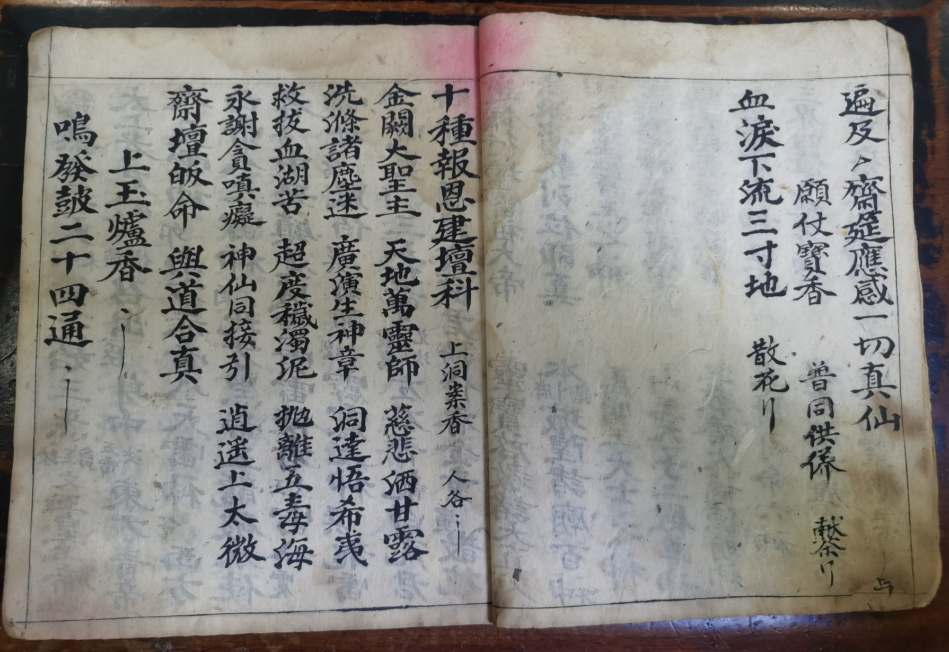 遍及〻齋筵應感一切真仙
願仗寶香 普同供養
血淚下流三寸地 散花
十種報恩建壇科 上洞案香 人各
金闕大聖主 天地萬靈師 慈悲洒甘露
洗滌諸塵迷 廣演生神章 洞達悟希夷
救拔血湖苦 超度穢濁泥 抛離五毒海
永謝貪嗔癡 神仙同接引 逍遥上太微
齋壇皈命 與道合真
上玉爐香
鳴發鼓二十四通